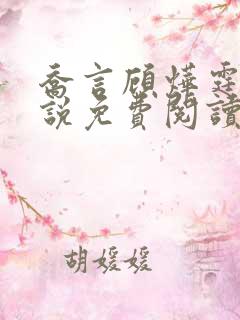 喬言顧燁霆
說免費閱讀
胡媛媛